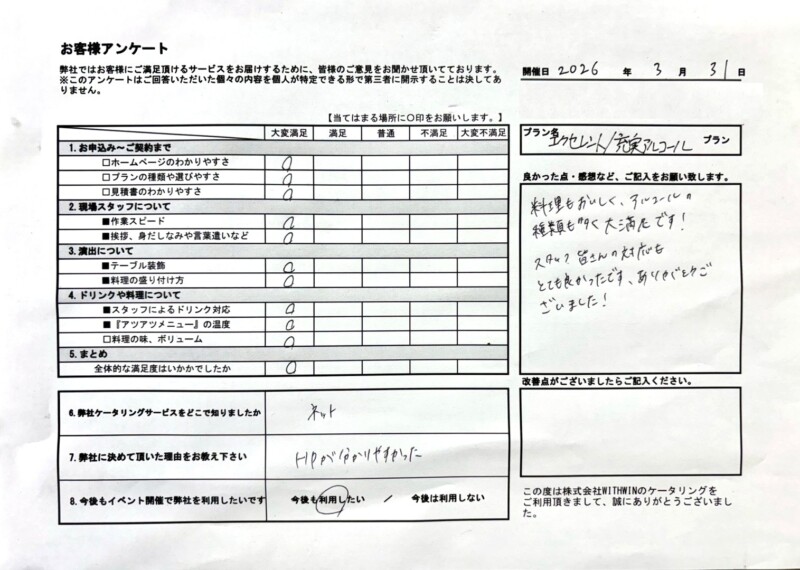 お客様アンケート
弊社ではお客様にご満足頂けるサービスをお届けするために、皆様のご意見をお聞かせ頂いております。
※このアンケートはご回答いただいた個々の内容を個人が特定できる形で第三者に開示することは決してあ
りません。
開催日 2026 年 3 月 31 日
【当てはまる場所に〇印をお願いします。】
大変満足 満足 普通 不満足 大変不満足
1. お申込み～ご契約まで
□ホームページのわかりやすさ 〇
□プランの種類や選びやすさ 〇
□見積書のわかりやすさ 〇
2. 現場スタッフについて
■作業スピード 〇
■挨拶、身だしなみや言葉遣いなど 〇
3. 演出について
■テーブル装飾 〇
■料理の盛り付け方 〇
4. ドリンクや料理について
■スタッフによるドリンク対応 〇
■『アツアツメニュー』の温度 〇
□料理の味、ボリューム 〇
5. まとめ
全体的な満足度はいかかでしたか 〇
6. 弊社ケータリングサービスをどこで知りましたか ネット
7. 弊社に決めて頂いた理由をお教え下さい HPが分かりやすかった
8. 今後もイベント開催で弊社を利用したいです 今後も利用したい / 今後は利用しない
プラン名 エクセレント/充実アルコール プラン
良かった点・感想など、ご記入をお願い致します。
料理もおいしく、アルコールの
種類も多く大満足です!
スタッフ皆さんの対応も
とても良かったです、ありがとうご
ざいました!
改善点がございましたらご記入ください。
この度は株式会社WITHWINのケータリングを
ご利用頂きまして、誠にありがとうございまし
た。